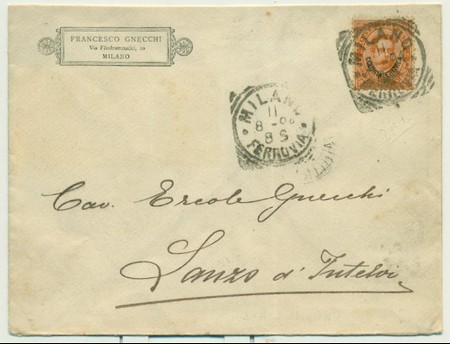 FRANCESCO GNECCHI
Via Filodrammatici, 10
MILANO
MILANO
FERROVIA
MILANO
11
8-96
8 S
FERROVIA
Cav. Ercole Gnecchi
Lanzo d'Intelvi